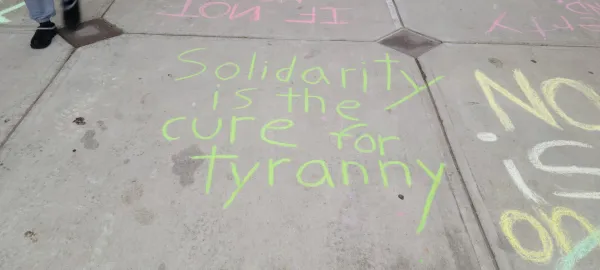 IF NOT
Solidarity
is the
cure for
tyranny
NO
is